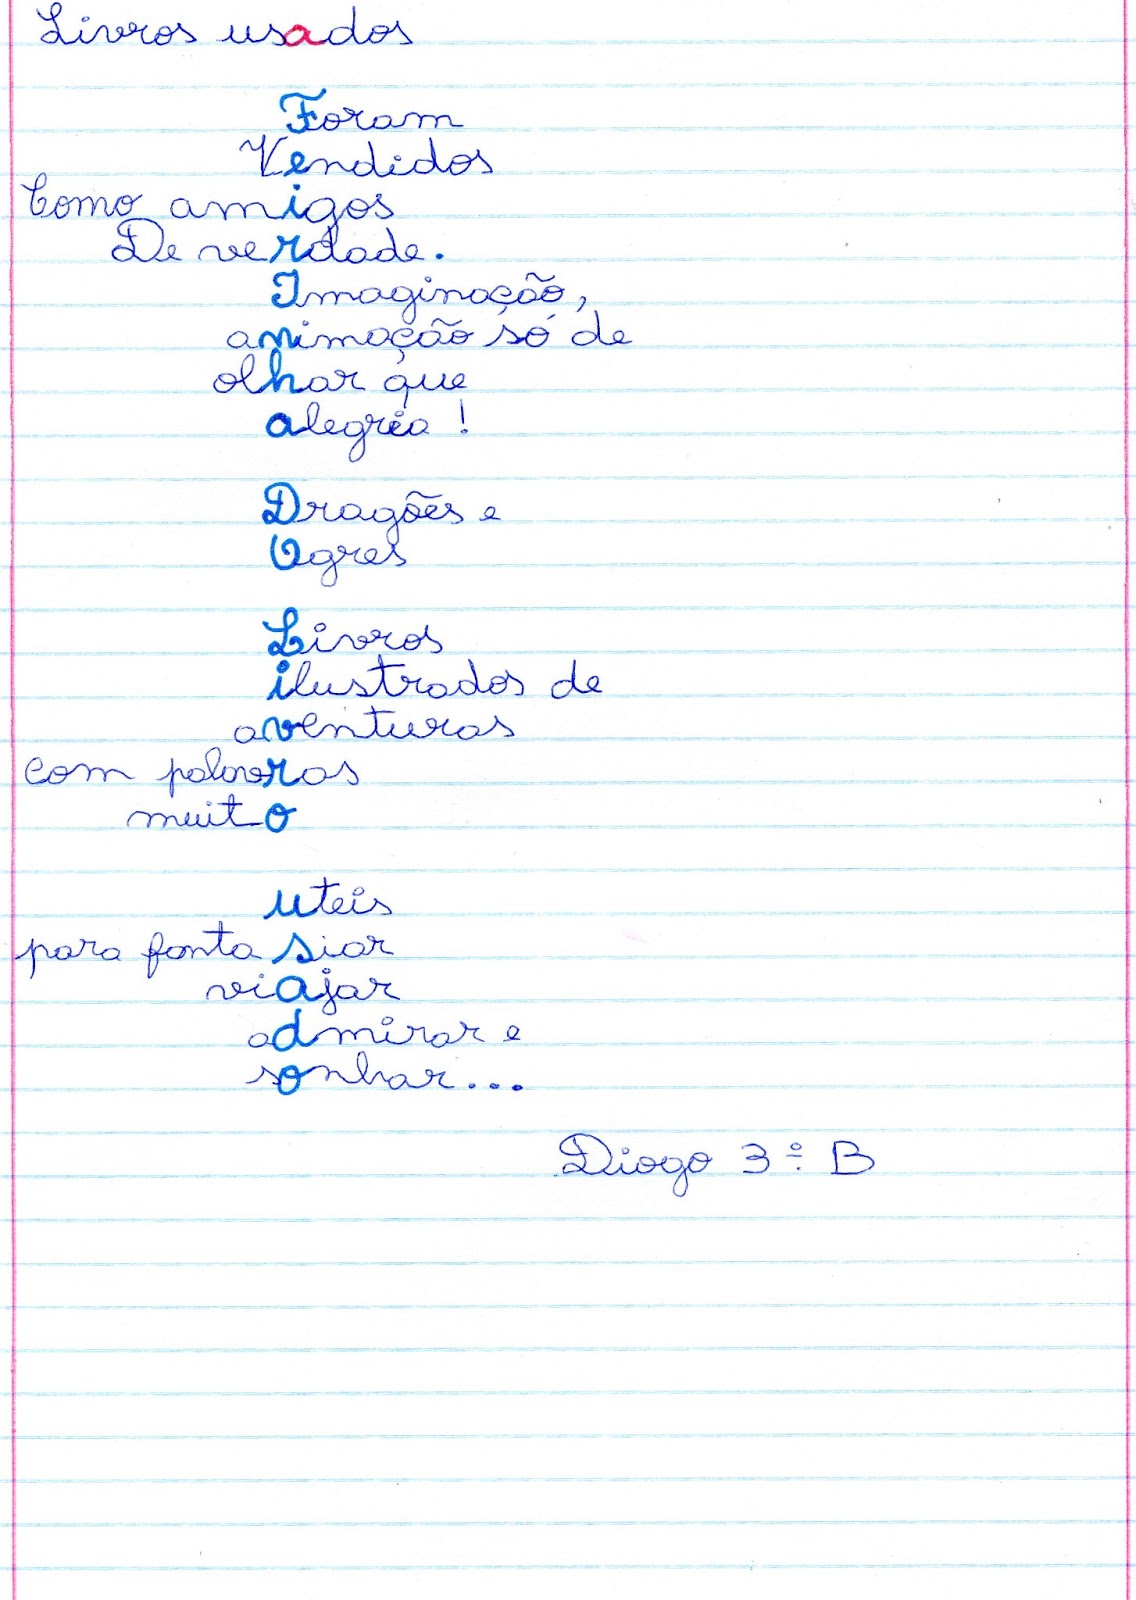 Livros usados
Foram
Vendidos
Como amigos
De verdade.
Imaginação,
animação só de
olhar que
alegria !
Dragões e
Ogres
Livros
ilustrados de
aventuras
com palavras
muito
uteis
para fanta siar
viajar
admirar e
sonhar...
Diogo 3º B